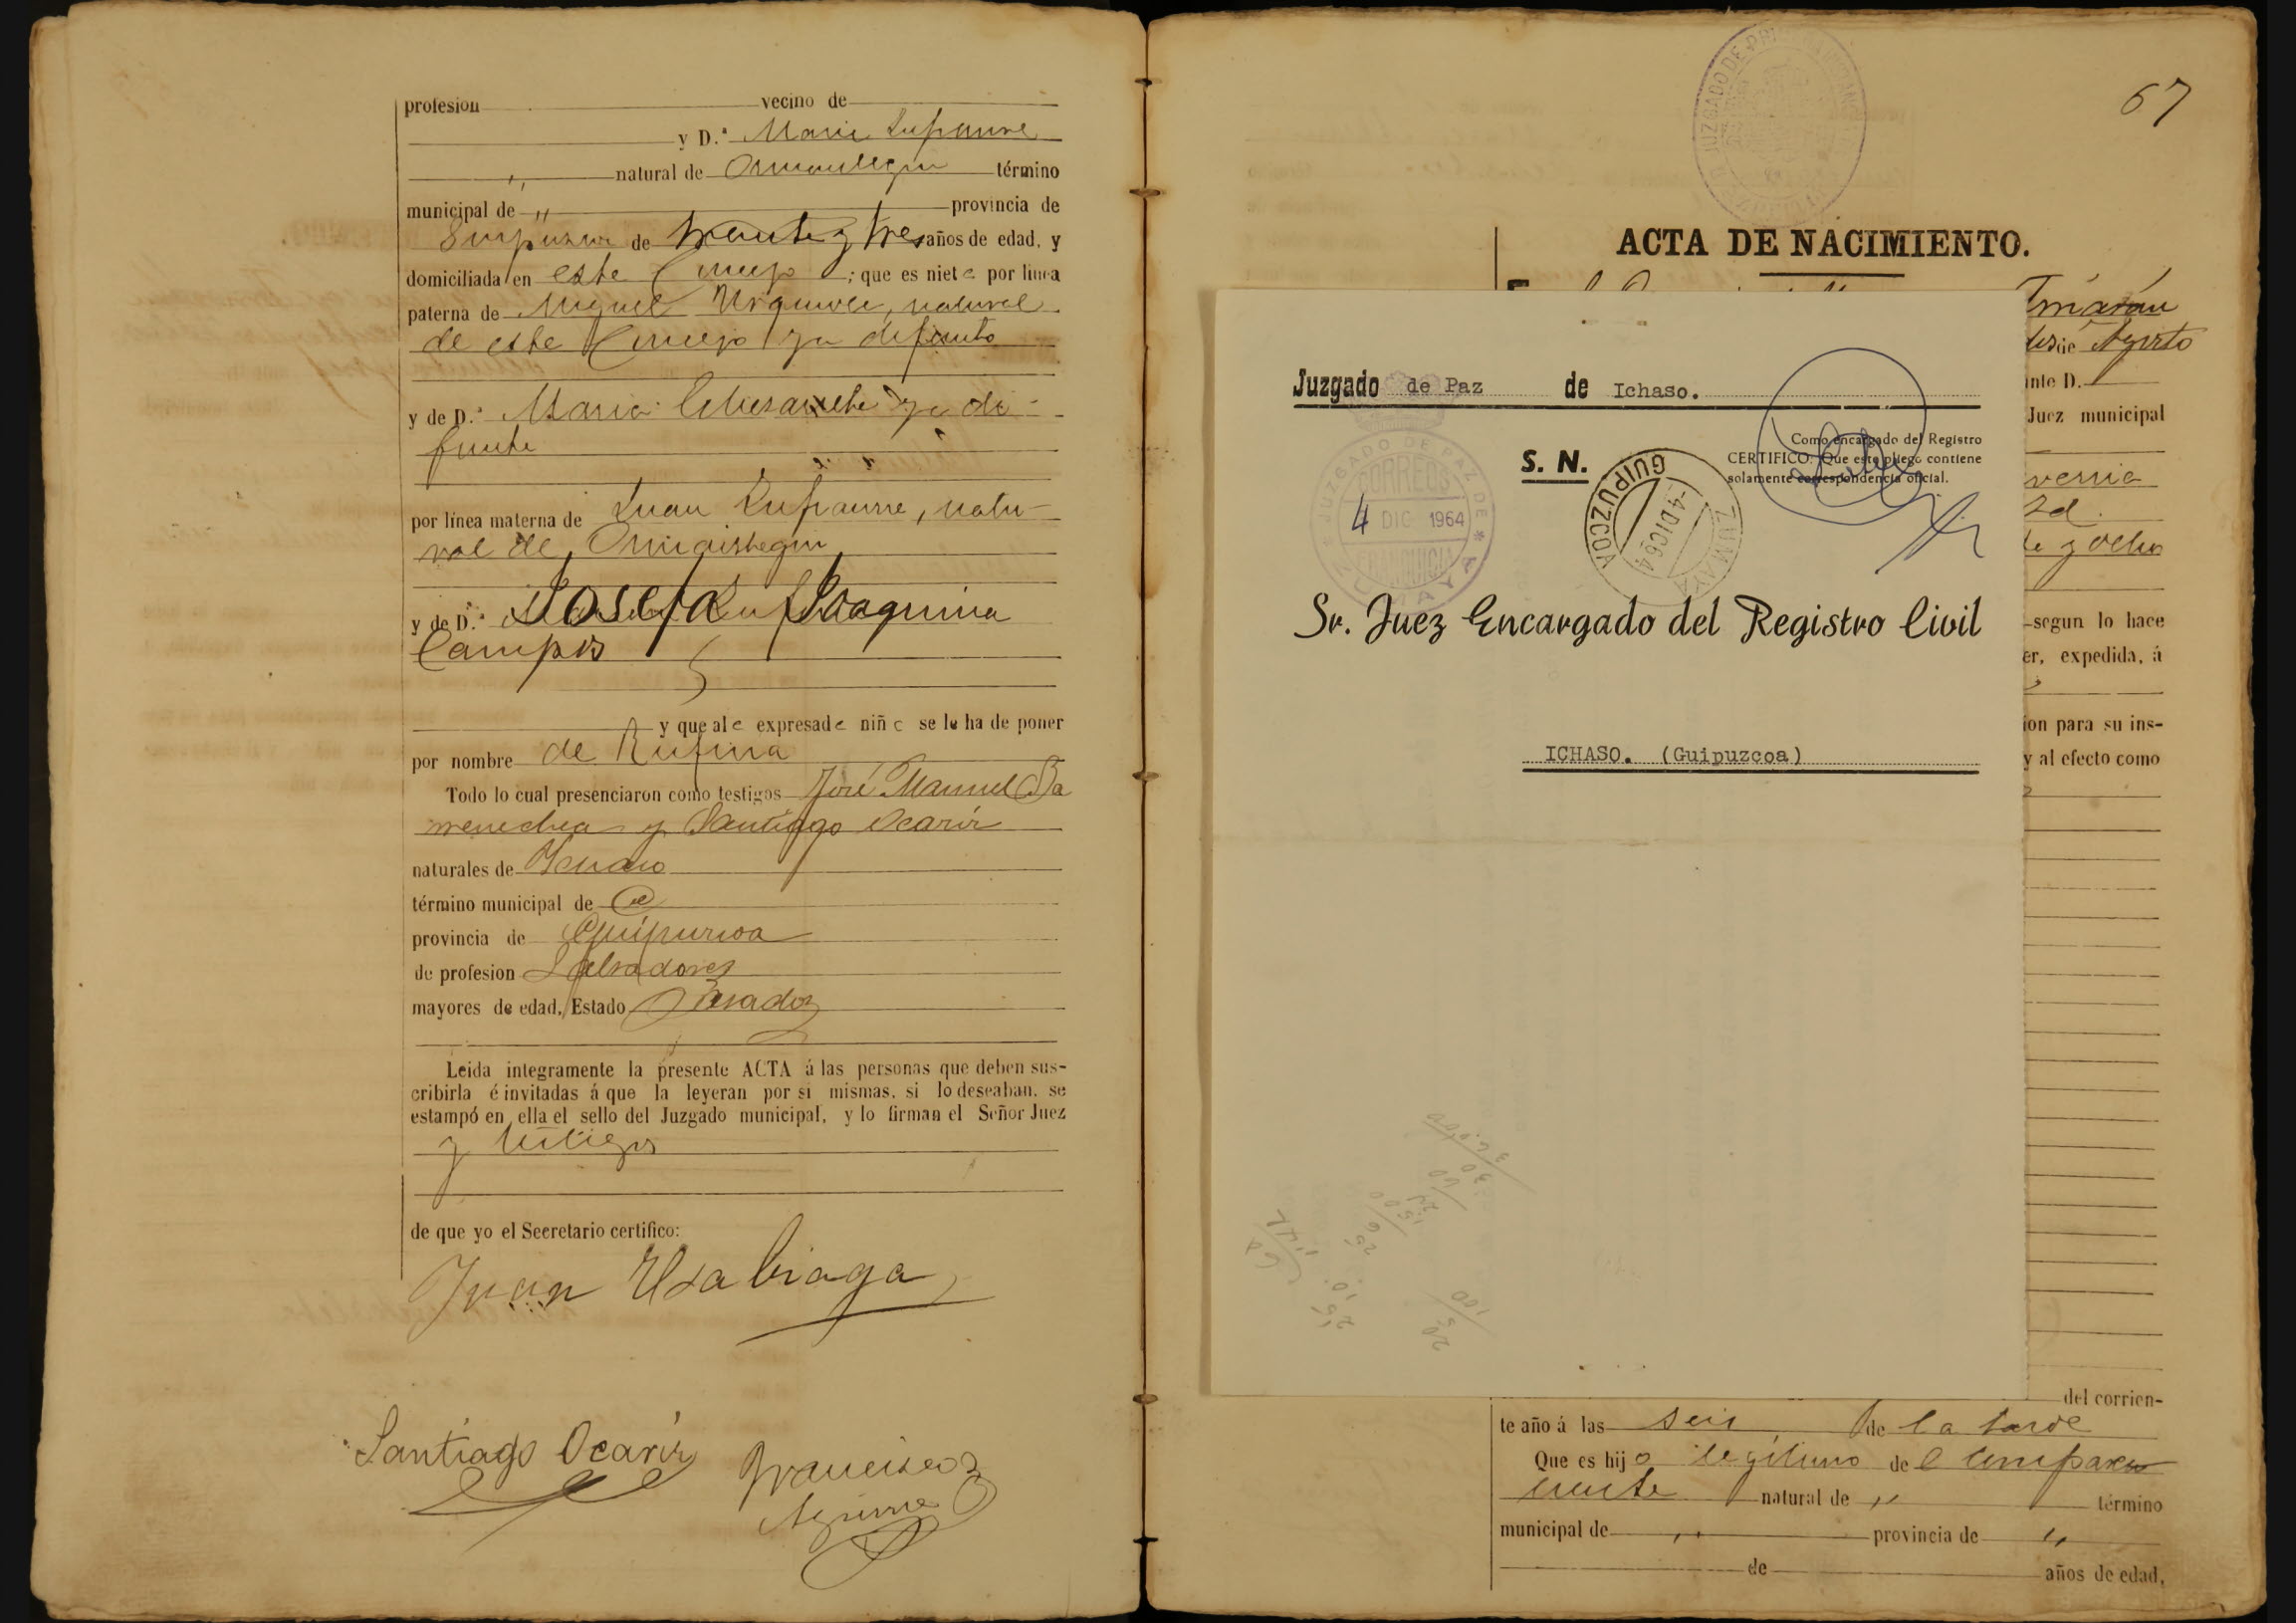 profesion vecino de
y D.ª Maria Lupaurre
" natural de Ormaiztegui término
municipal de " provincia de
Guipuzcoa de treinta y tres años de edad, y
domiciliada en este Concejo ; que es nieta por linea
paterna de Miguel natural
de este Concejo ya difunto
y de D.ª Maria ya di-
funta
por línea materna de Juan Lupaurre, natu-
ral de Ormaiztegui
y de D.ª Josefa Joaquina
Campos
y que al a expresada niña se le ha de poner
por nombre de Rufina
Todo lo cual presenciaron como testigos José Manuel Ba
rrenechea y Santiago Ocariz
naturales de Ichaso
término municipal de
provincia de Guipuzcoa
de profesion Labradores
mayores de edad, Estado Casados
Leida integramente la presente ACTA á las personas que deben sus-
cribirla é invitadas á que la leyeran por si mismas, si lo deseaban, se
estampó en ella el sello del Juzgado municipal, y lo firman el Señor Juez
y testigos
de que yo el Secretario certifico:
Juan Usabiaga
Santiago Ocariz
Francisco
Aguirre
67
ACTA DE NACIMIENTO.
Agosto
ante D.
Juez municipal
te y ocho
segun lo hace
er, expedida, á
ion para su ins-
y al efecto como
Juzgado de Paz de Ichaso.
Como encargado del Registro
S. N. CERTIFICO: Que este pliego contiene
solamente correspondencia oficial.
JUZGADO DE PAZ DE ZUMAYA
CORREOS
4 DIC 1964
FRANQUICIA
GUIPUZCOA
-4 DIC 64
ZUMAYA
Sr. Juez Encargado del Registro Civil
ICHASO. (Guipuzcoa)
del corrien-
te año á las seis de la tarde
Que es hijo legítimo de el compare
ciente natural de " término
municipal de " provincia de "
de años de edad,